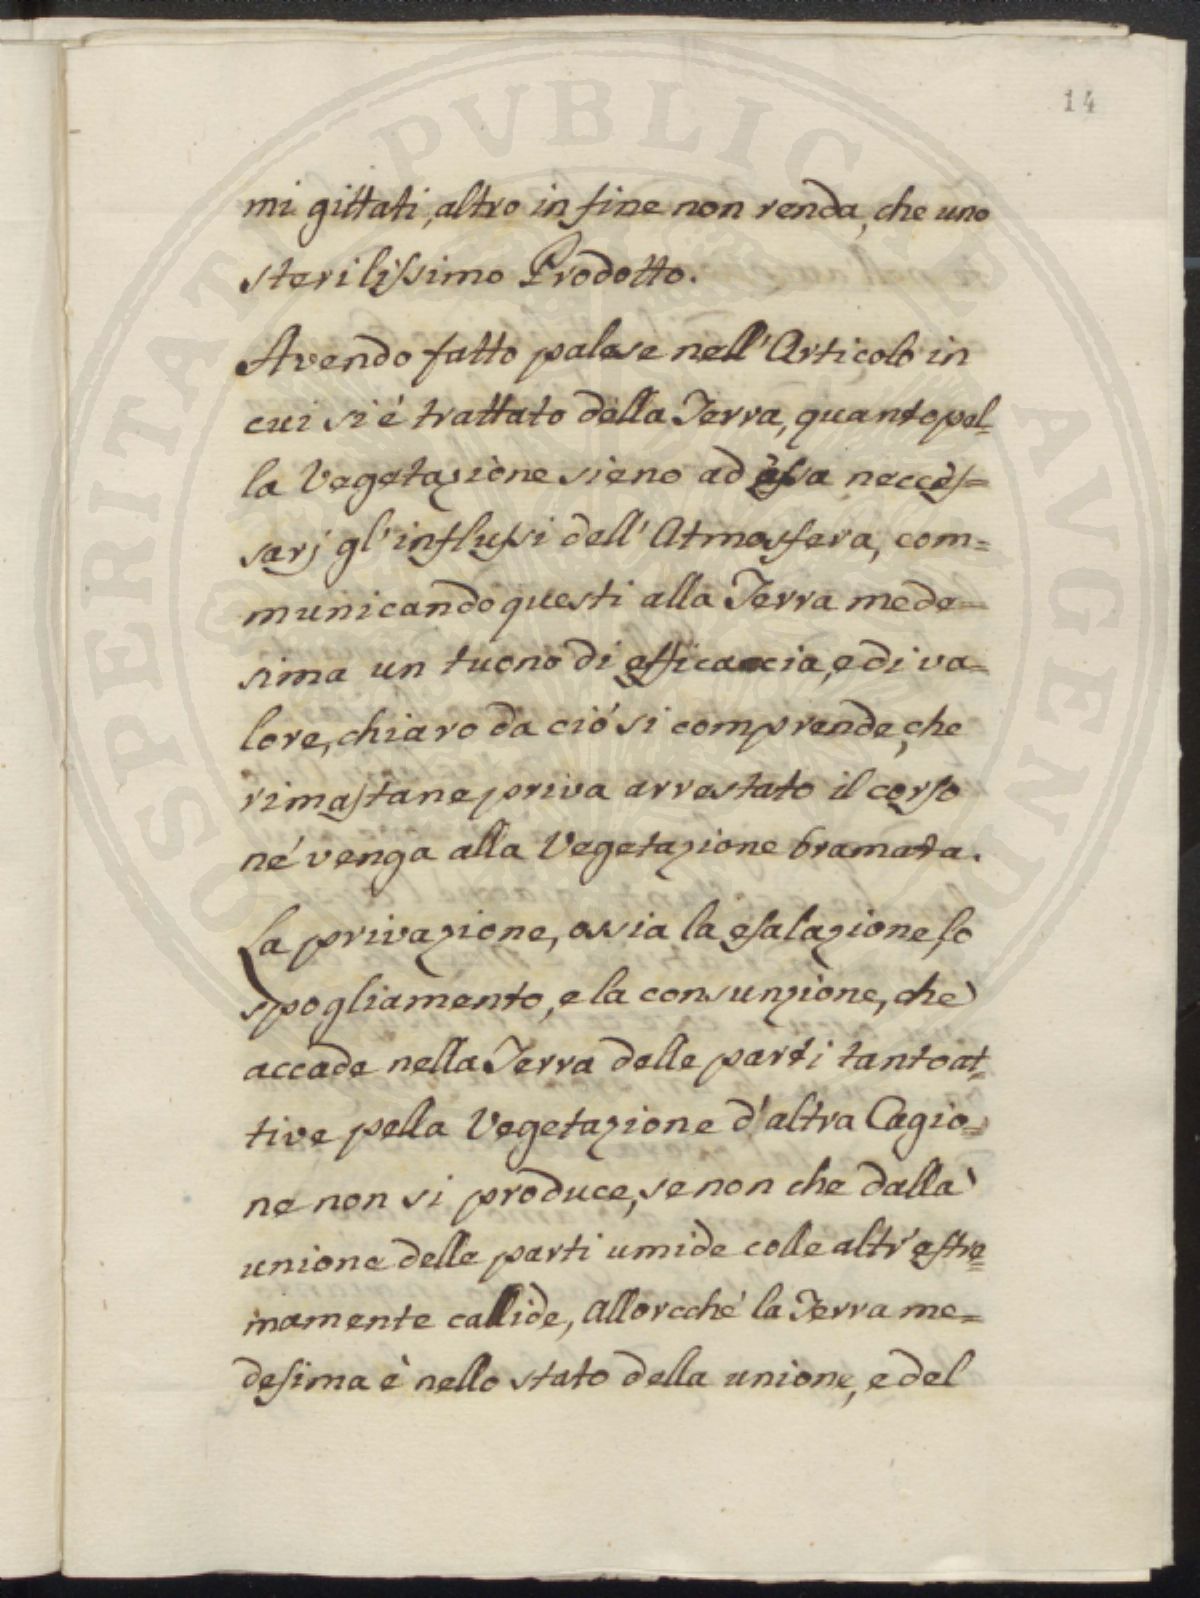 14
mi gittati, altro in fine non renda, che uno
sterilissimo Prodotto.
Avendo fatto palese nell'Articolo in
cui si è trattato della Terra, quanto pel-
la Vegetazione sieno ad essa neccès=
sarj gl'influssi dell'Atmosfera, com=
municando questi alla Terra mede=
sima un tuono di efficaccia, e di va=
lore, chiaro da ciò si comprende, che
rimastane priva arrestato il corso
né venga alla Vegetazione bramata.
La privazione, ossia la esalazione, lo
spogliamento, e la consunzione, che
accade nella Terra delle parti tanto at-
tive pella Vegetazione d'altra Cagio=
ne non si produce, se non che dalla
unione delle parti umide colle altr'estre=
mamente callide, allorcché la Terra me=
desima è nello stato della unione, e del
PROSPERITATI PUBLICAE AUGENDAE